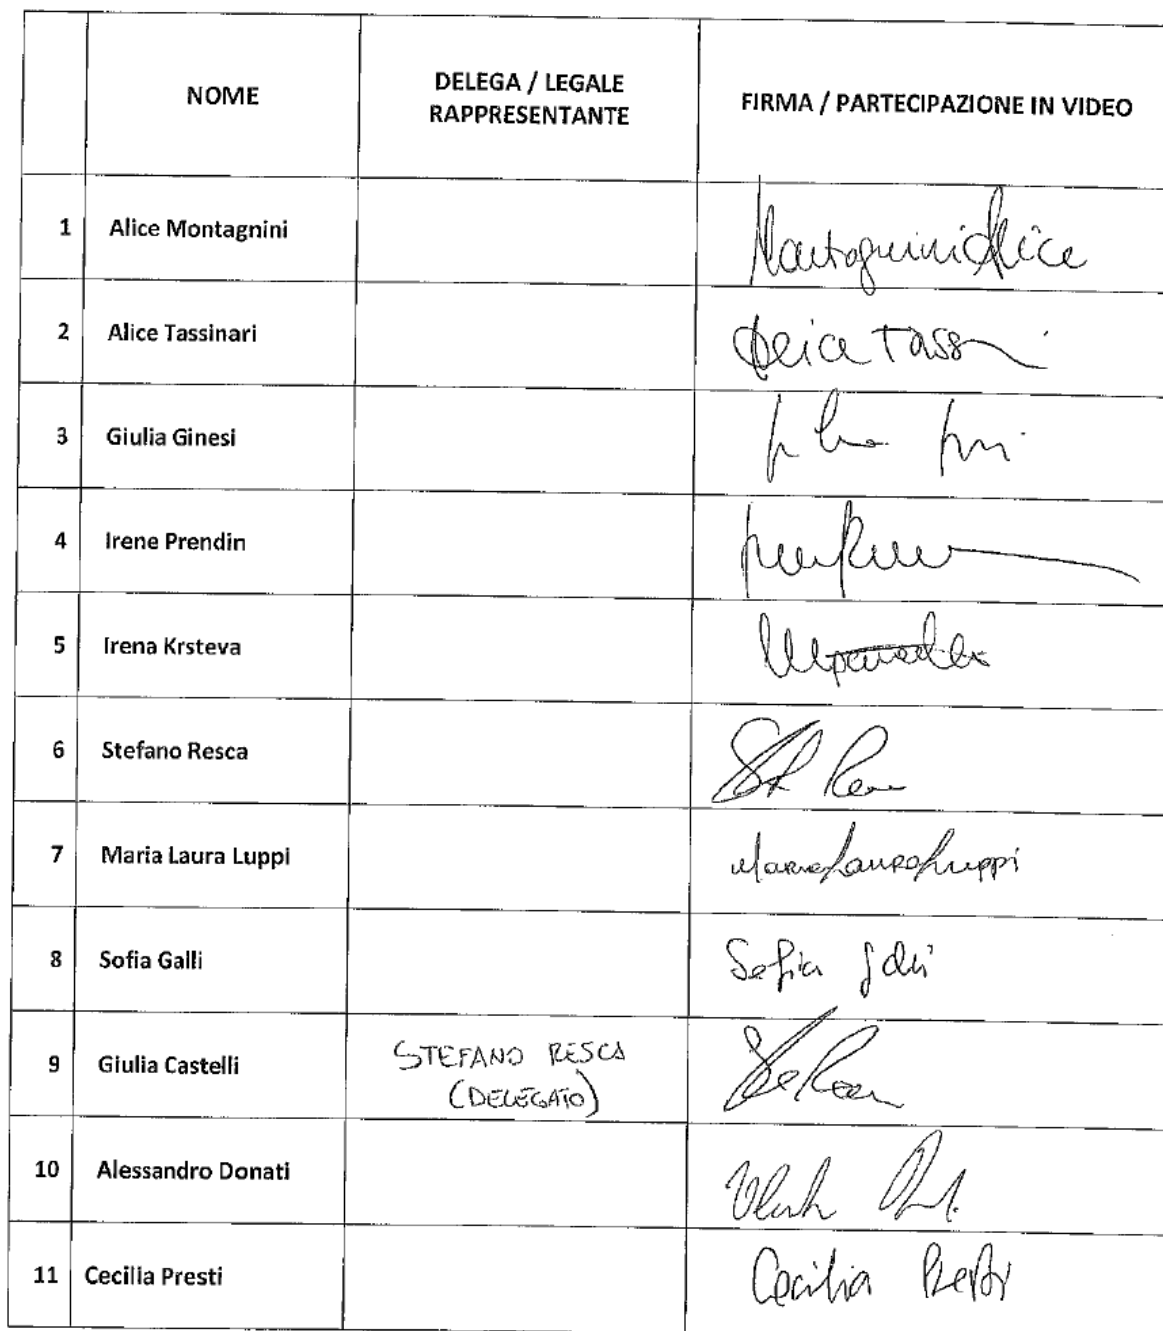 NOME
DELEGA / LEGALE
RAPPRESENTANTE
FIRMA / PARTECIPAZIONE IN VIDEO
1 Alice Montagnini Montagnini Alice
2 Alice Tassinari Alice Tass
3 Giulia Ginesi
4 Irene Prendin
5 Irena Krsteva
6 Stefano Resca
7 Maria Laura Luppi Maria Laura Luppi
8 Sofia Galli Sofia Galli
9 Giulia Castelli STEFANO RESCA
(DELEGATO)
10 Alessandro Donati
11 Cecilia Presti Cecilia Presti